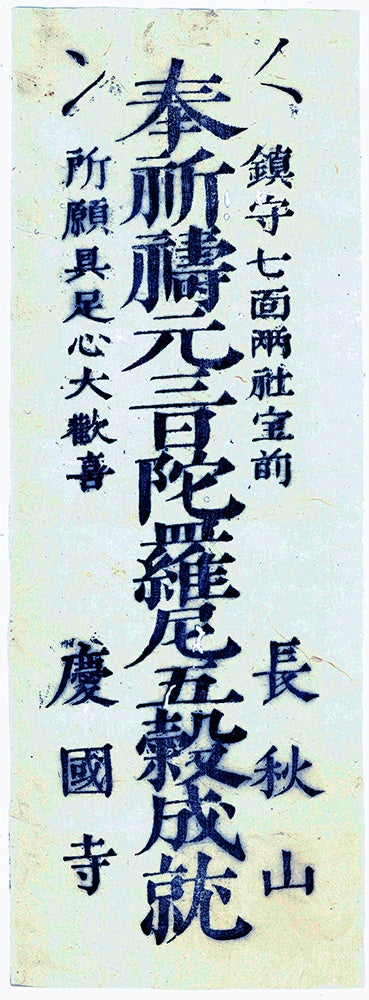 鎮守七面両社宝前
長秋山
奉祈禱元三百陀羅尼五穀成就
所願具足心大歓喜
慶國寺